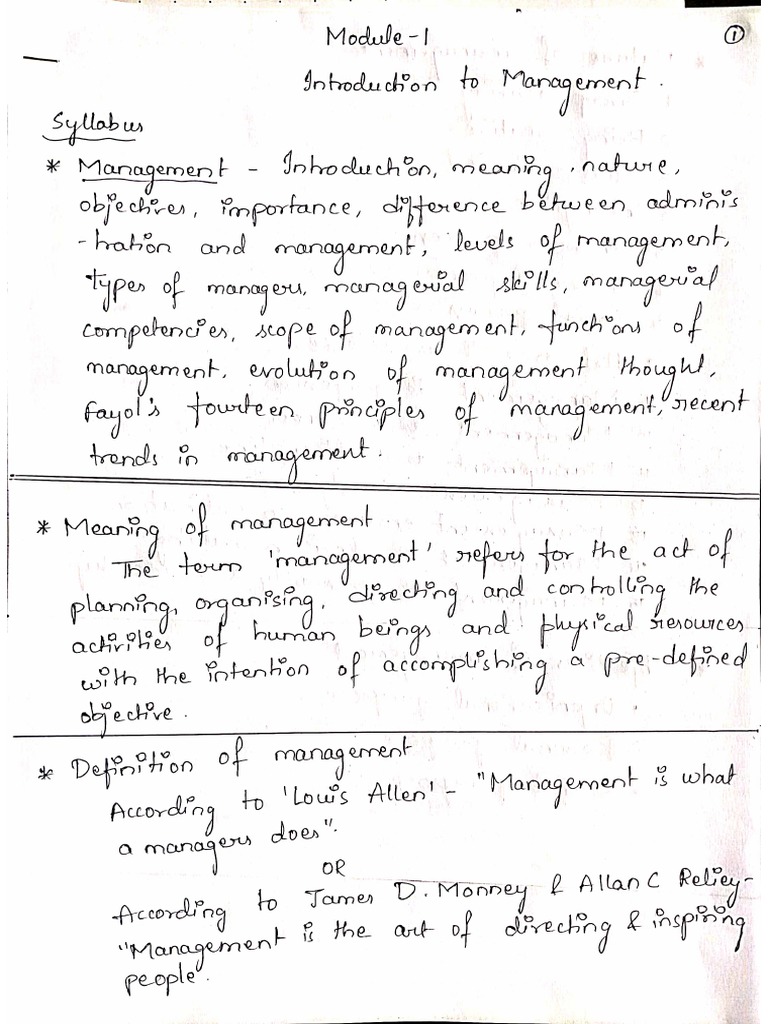 Module-1
①
Introduction to Management.
Syllabus
* Management - Introduction, meaning, nature,
objectives, importance, difference between adminis
-tration and management, levels of management,
types of managers, managerial skills, managerial
competencies, scope of management, functions of
management, evolution of management thought,
Fayol's fourteen principles of management, recent
trends in management.
* Meaning of management
The term 'management' refers for the act of
planning, organising, directing and controlling the
activities of human beings and physical resources
with the intention of accomplishing a pre-defined
objective.
* Definition of management
According to 'Lowis Allen' - "Management is what
a managers does".
OR
According to James D. Monney & Allan C Reliey-
"Management is the art of directing & inspiring
people".